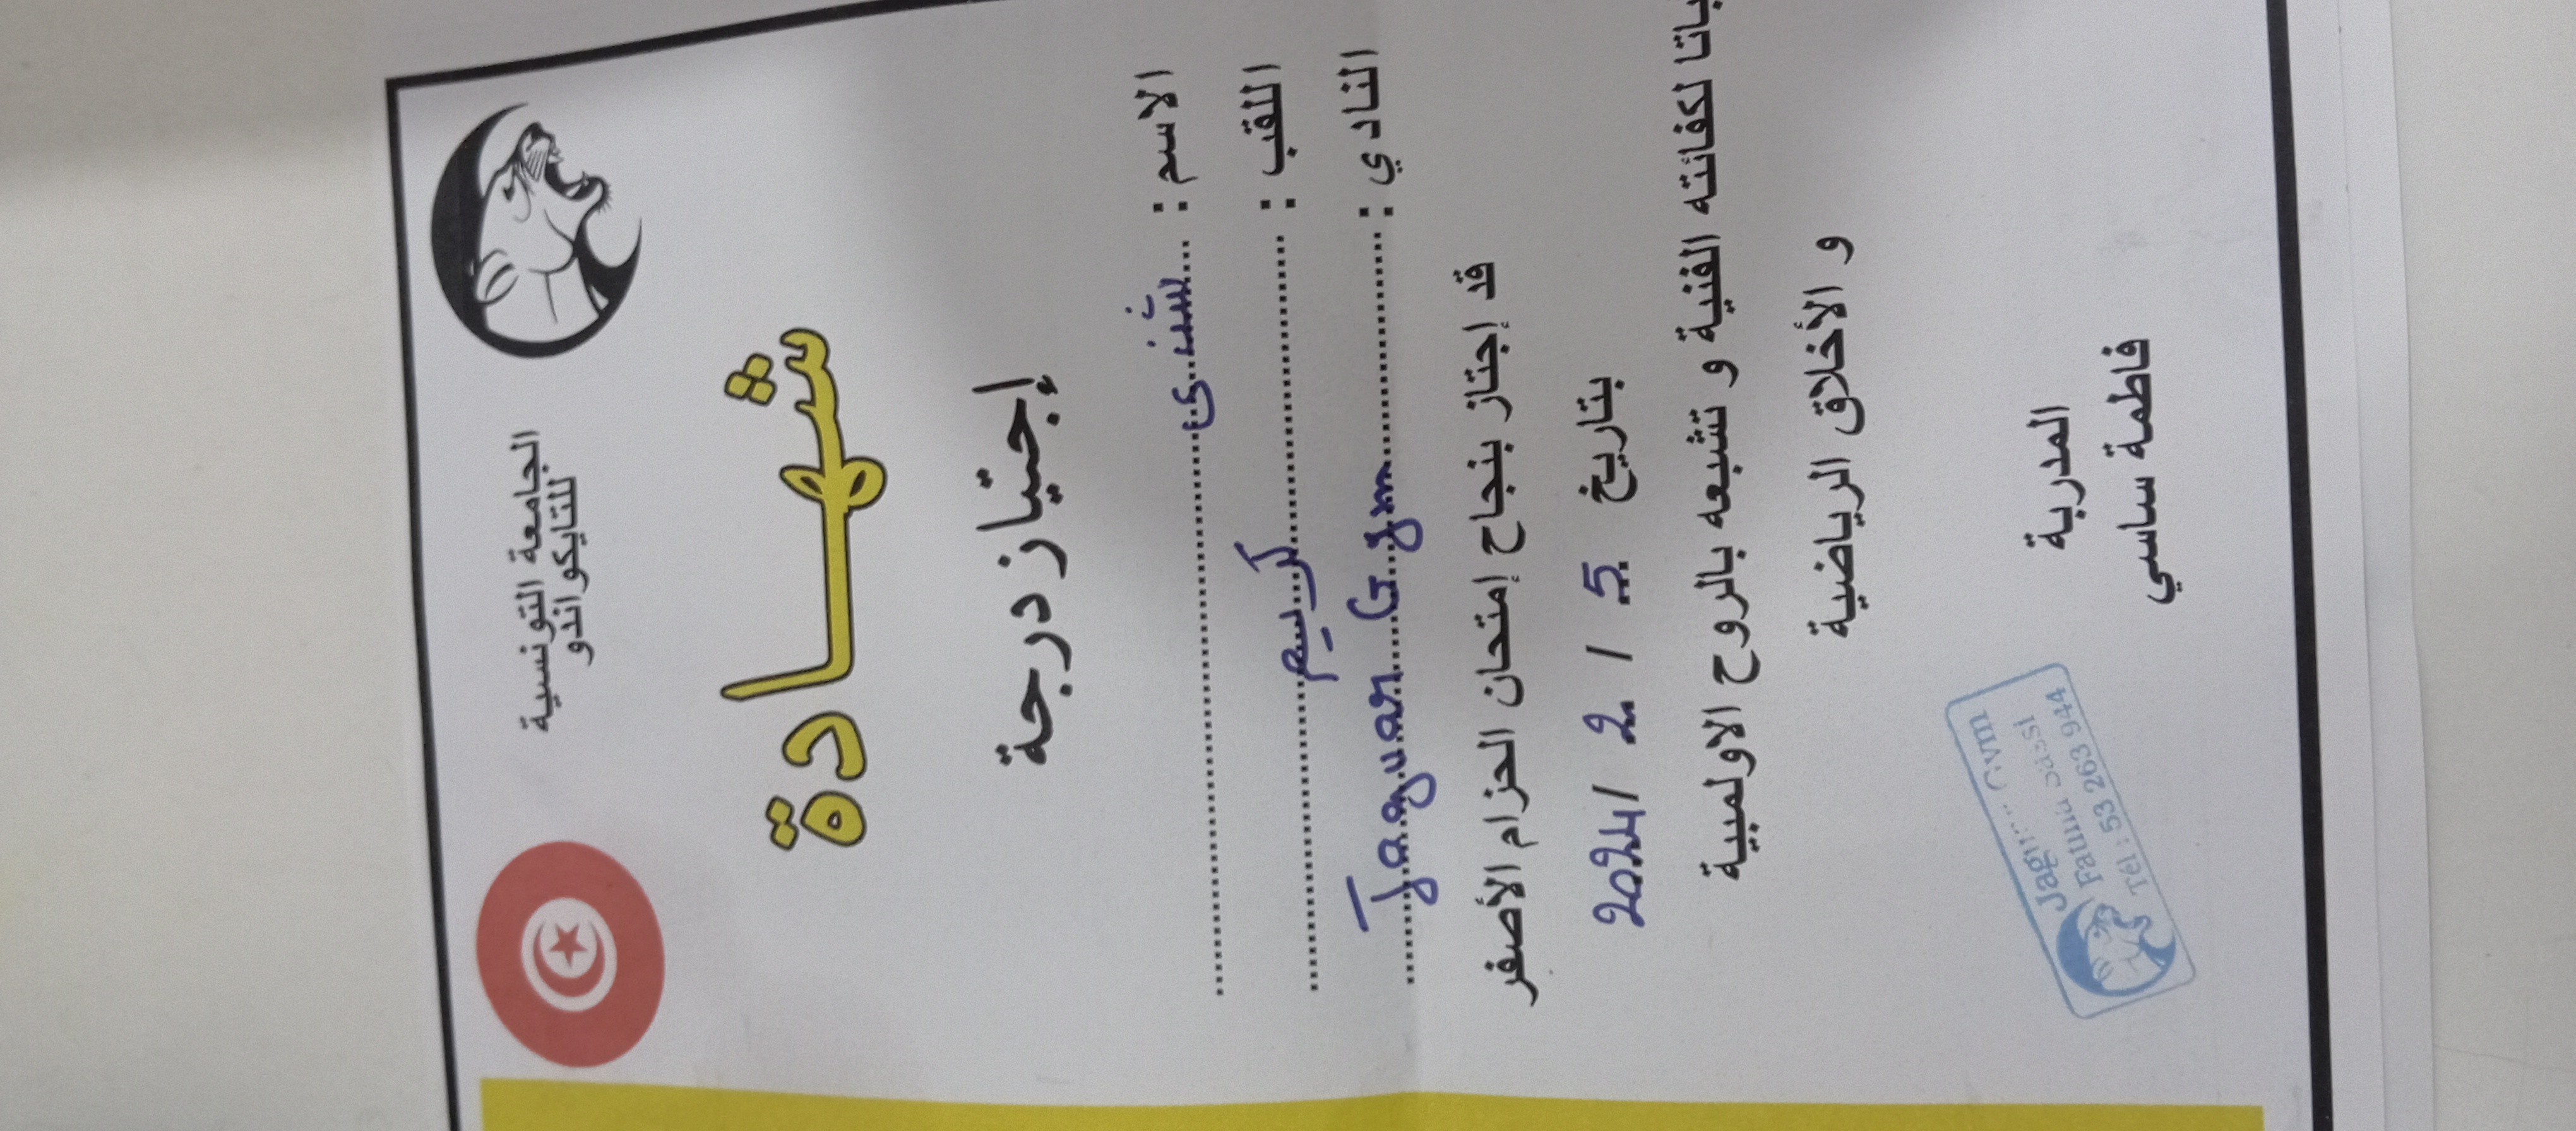 الجامعة التونسية
للتايكواندو
شهادة
إجتياز درجة
الاسم :
اللقب : كريم
النادي : Jaguar Gym
قد إجتاز بنجاح إمتحان الحزام الأصفر
بتاريخ 5 / 2 / 2024
لكفائته الفنية و تشبعه بالروح الاولمبية
و الأخلاق الرياضية
المدربة
فاطمة ساسي
Jaguar Gym
Fatma Sassi
Tél : 53 263 944